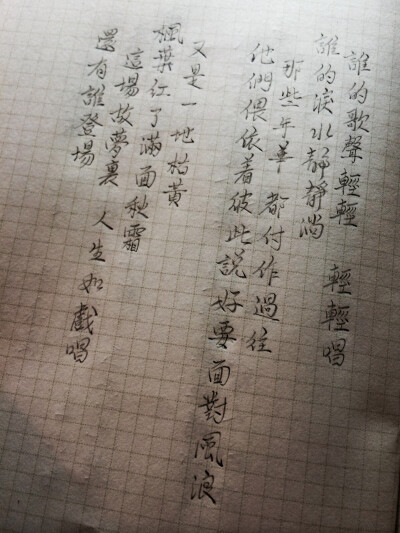 誰的歌聲輕輕 輕輕唱
誰的淚水靜靜淌
那些年華 都付作過往
他們偎依着彼此說好要面對風浪
又是一地枯黃
楓葉红了滿面秋霜
這場故夢裏 人生如戲唱
還有誰登場